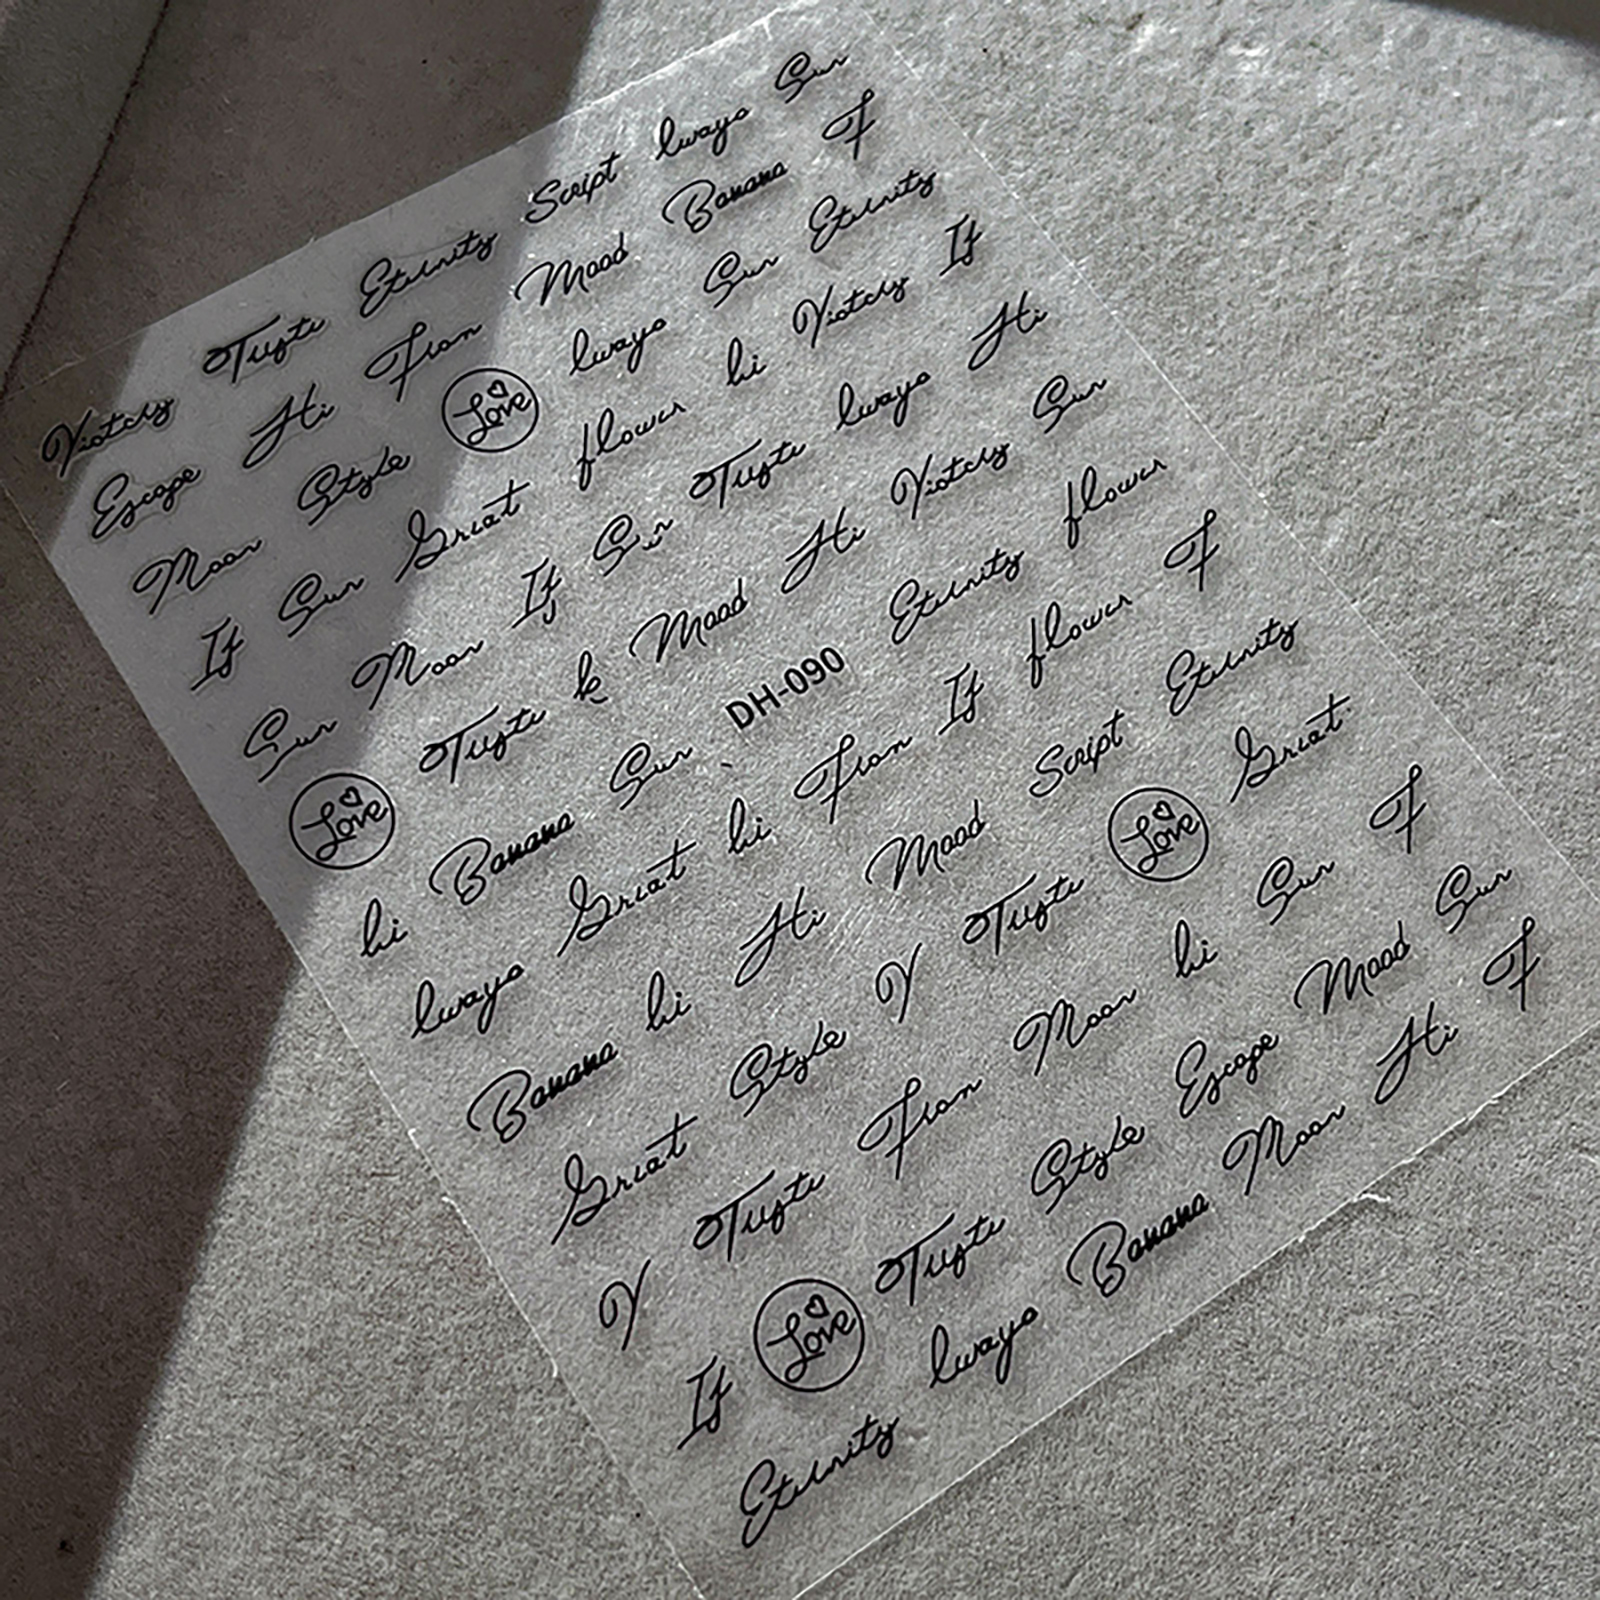 Victory Eternity Script lways Sun
Escape Hi From Mood Banana F
Moon Style Love lways Sun Eternity
If Sun Great flower hi Victory If
Sun Moon If Sun lways Hi
Love k Mood Hi Victory Sun
hi Banana Sun DH-090 Eternity flower
lways Great hi From If flower F
Banana hi Hi Mood Script Eternity
Great Style V Love Great
V From Moon hi Sun F
If Love Style Escape Mood Sun
Eternity lways Banana Moon Hi F